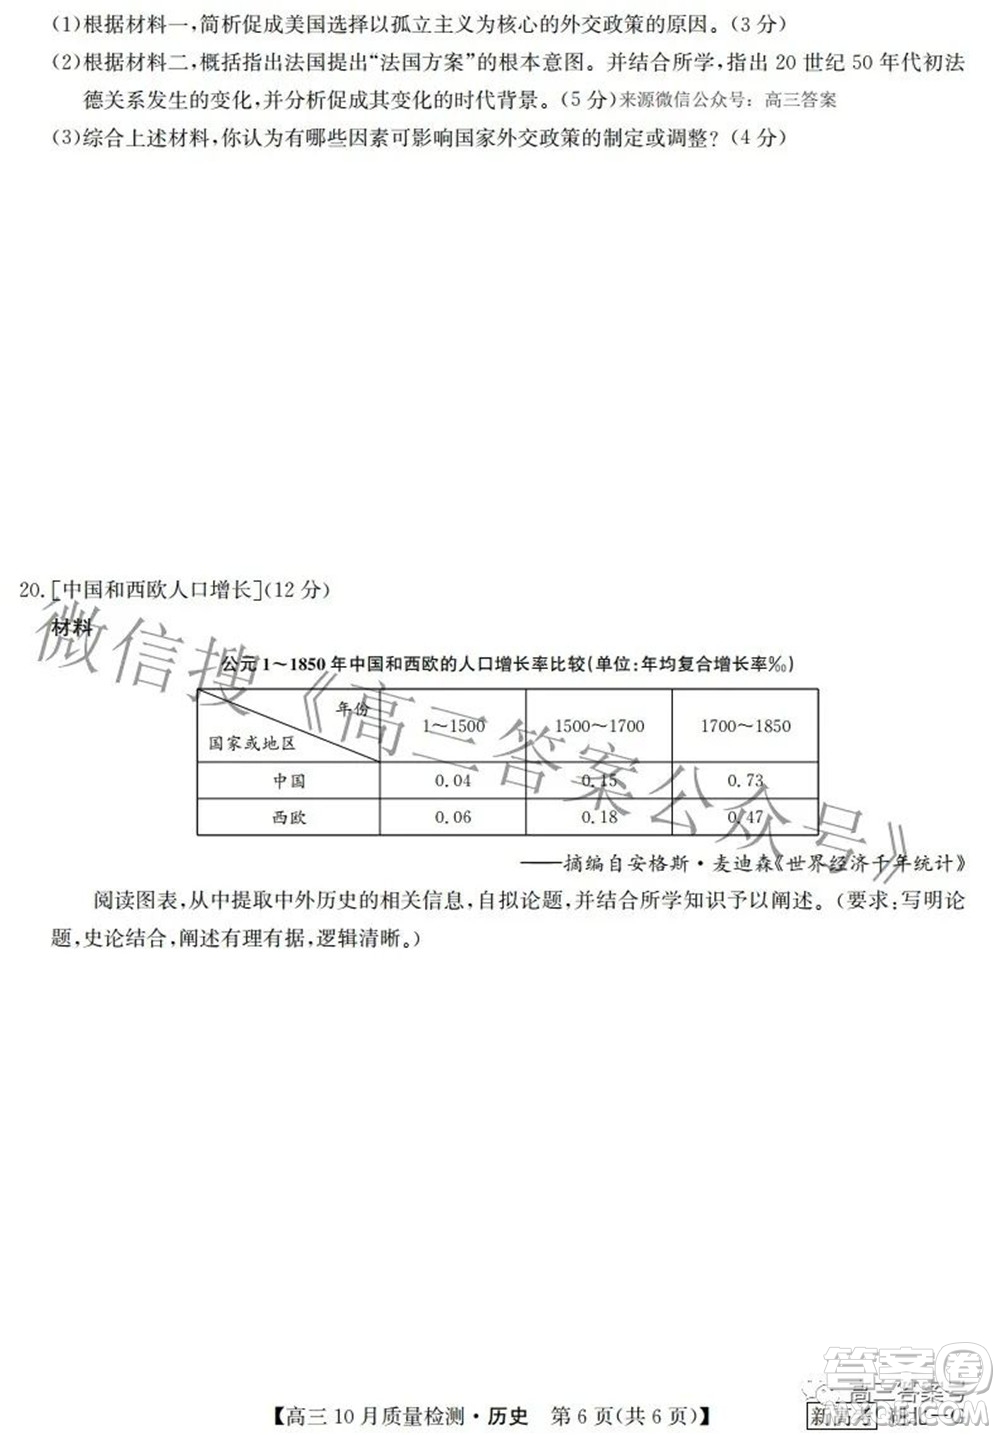 (1)根据材料一,简析促成美国选择以孤立主义为核心的外交政策的原因。(3 分)
(2)根据材料二,概括指出法国提出“法国方案”的根本意图。并结合所学,指出 20 世纪 50 年代初法
德关系发生的变化,并分析促成其变化的时代背景。(5 分)来源微信公众号：高三答案
(3)综合上述材料,你认为有哪些因素可影响国家外交政策的制定或调整？(4 分)
20.[中国和西欧人口增长](12 分)
材料
公元 1～1850 年中国和西欧的人口增长率比较(单位:年均复合增长率‰)
年份
国家或地区
1～1500 1500～1700 1700～1850
中国 0.04 0.15 0.73
西欧 0.06 0.18 0.47
——摘编自安格斯·麦迪森《世界经济千年统计》
阅读图表,从中提取中外历史的相关信息,自拟论题,并结合所学知识予以阐述。(要求:写明论
题,史论结合,阐述有理有据,逻辑清晰。)
微信搜《高三答案公众号》
答案卷
高三答案号
【高三 10 月质量检测·历史 第 6 页(共 6 页)】
新高考 湖北—G